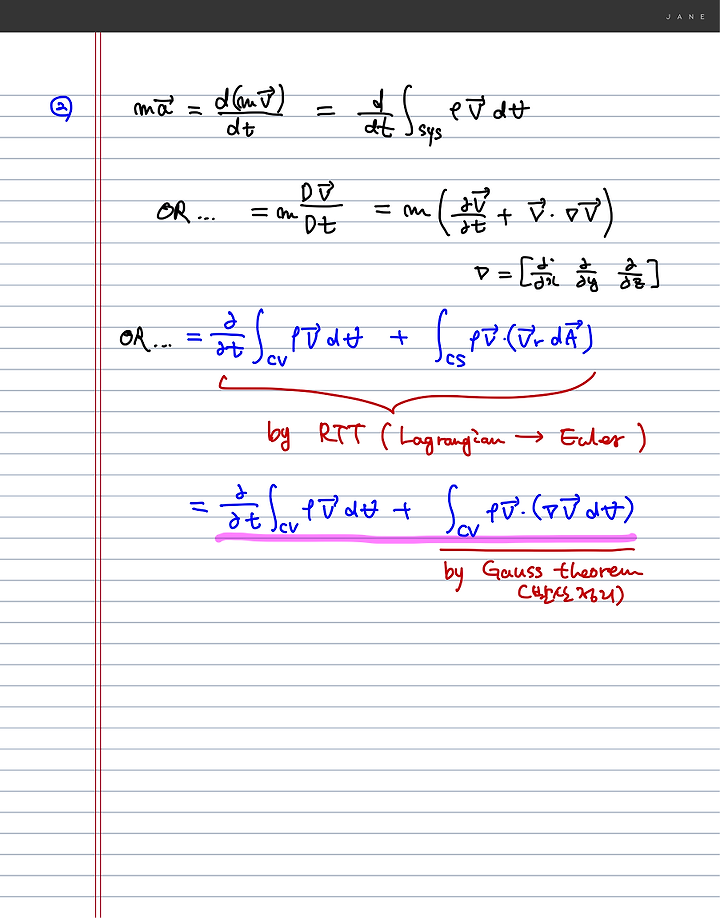 JANE
② ma⃗ = d(mV⃗)/dt = d/dt ∫sys ρV⃗ dV̶
OR ... = m DV⃗/Dt = m(∂V⃗/∂t + V⃗·∇V⃗)
∇ = [∂/∂x ∂/∂y ∂/∂z]
OR ... = ∂/∂t ∫CV ρV⃗ dV̶ + ∫CS ρV⃗·(V⃗r dA⃗)
by RTT (Lagrangian → Euler)
= ∂/∂t ∫CV ρV⃗ dV̶ + ∫CV ρV⃗·(∇V⃗ dV̶)
by Gauss theorem
(발산정리)